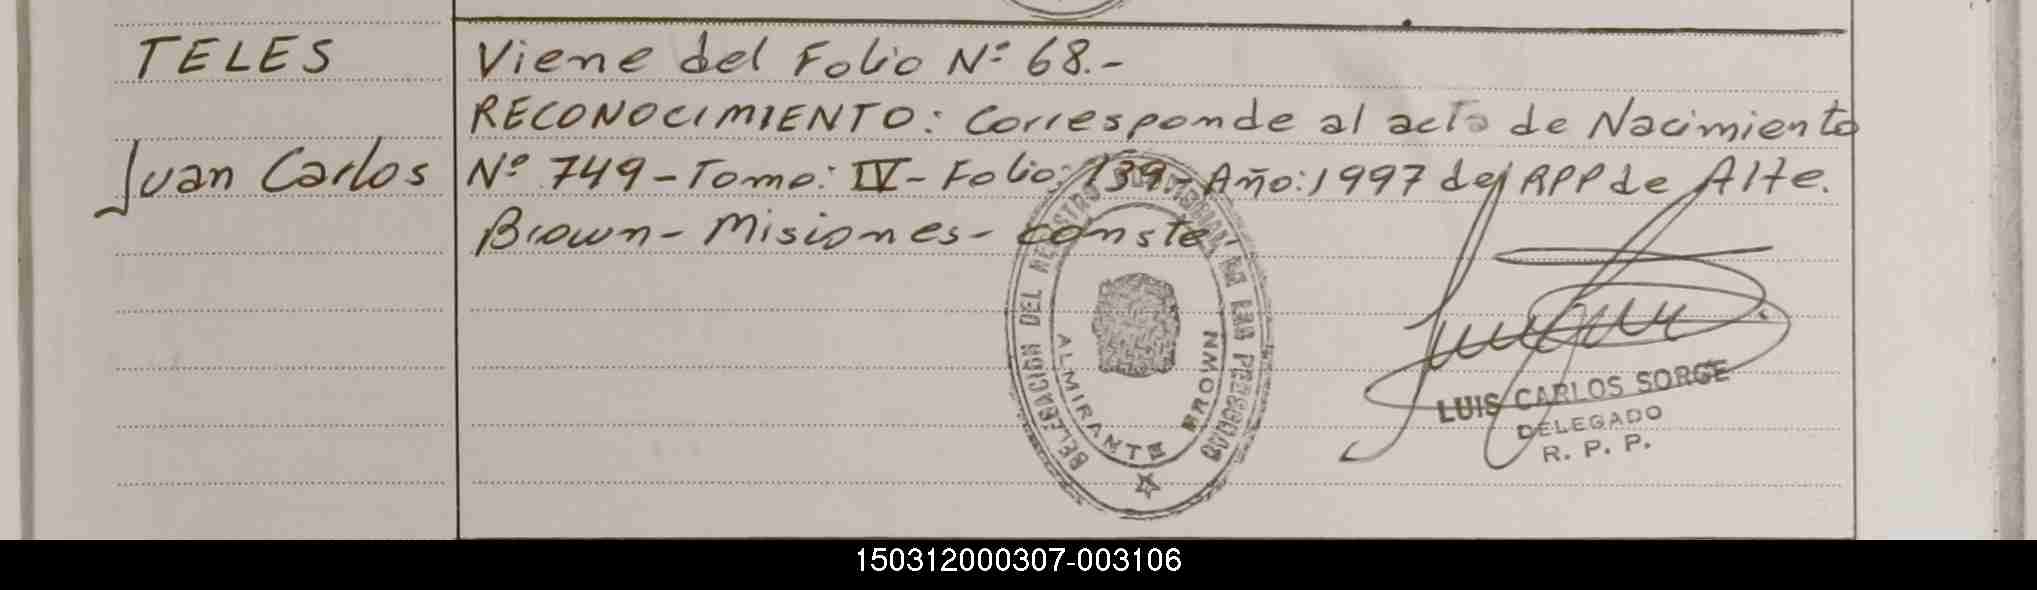 TELES
Juan Carlos
Viene del Folio Nº 68.-
RECONOCIMIENTO: Corresponde al acta de Nacimiento
Nº 749 - Tomo: IV - Folio: 139 - Año: 1997 del RPP de Alte.
Brown - Misiones - conste
DELEGACION DEL REGISTRO PROVINCIAL DE LAS PERSONAS
ALMIRANTE BROWN
LUIS CARLOS SORGE
DELEGADO
R. P. P.
150312000307-003106